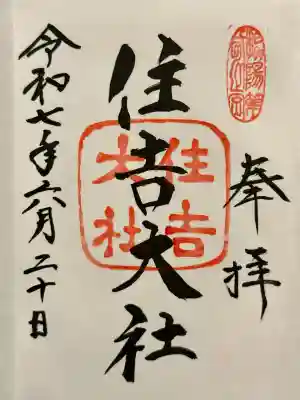 奉拝
住吉大社
住吉
大社
令和七年六月二十日